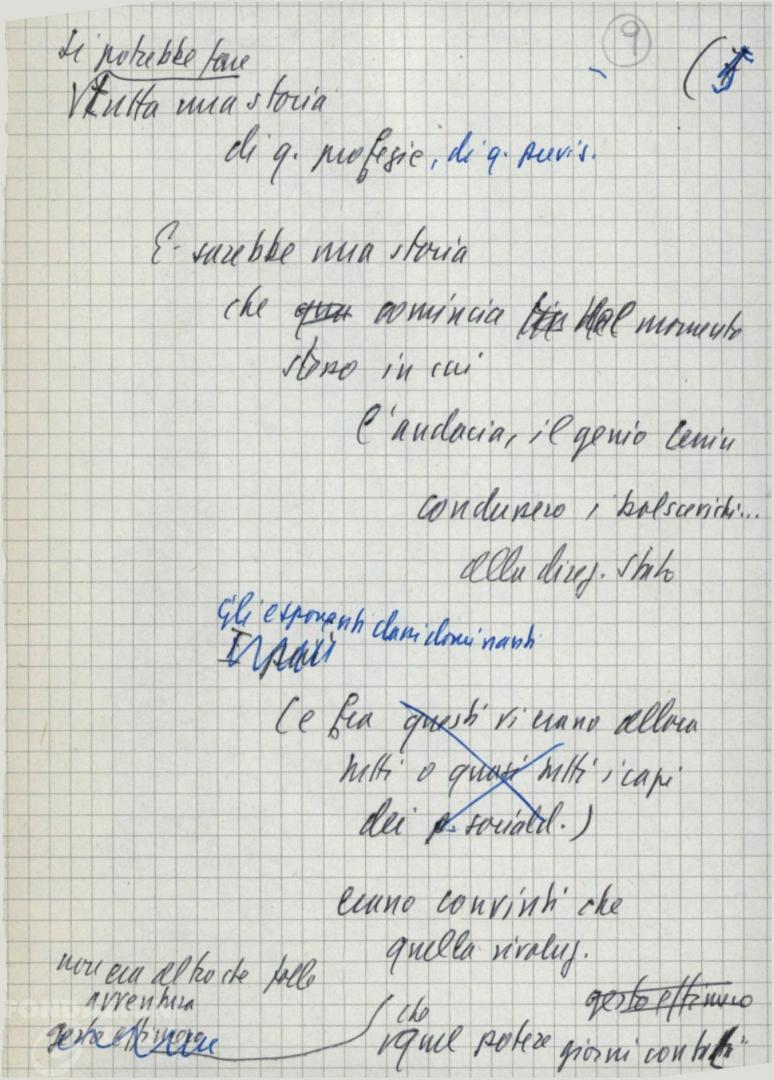 9
Si potrebbe fare
tutta una storia
di q. profezie, di q. previs.
E sarebbe una storia
che comincia dal momento
stesso in cui
l'audacia, il genio Lenin
condussero i bolscevichi...
alla direz. Stato
Gli esponenti classi dominanti
(e fra questi vi erano allora
tutti o quasi tutti i capi
dei p. sociald.)
erano convinti che
quella rivoluz.
non era altro che folle
avventura
gesto effimero
gesto effimero
che
quel potere giorni contati"
FOND